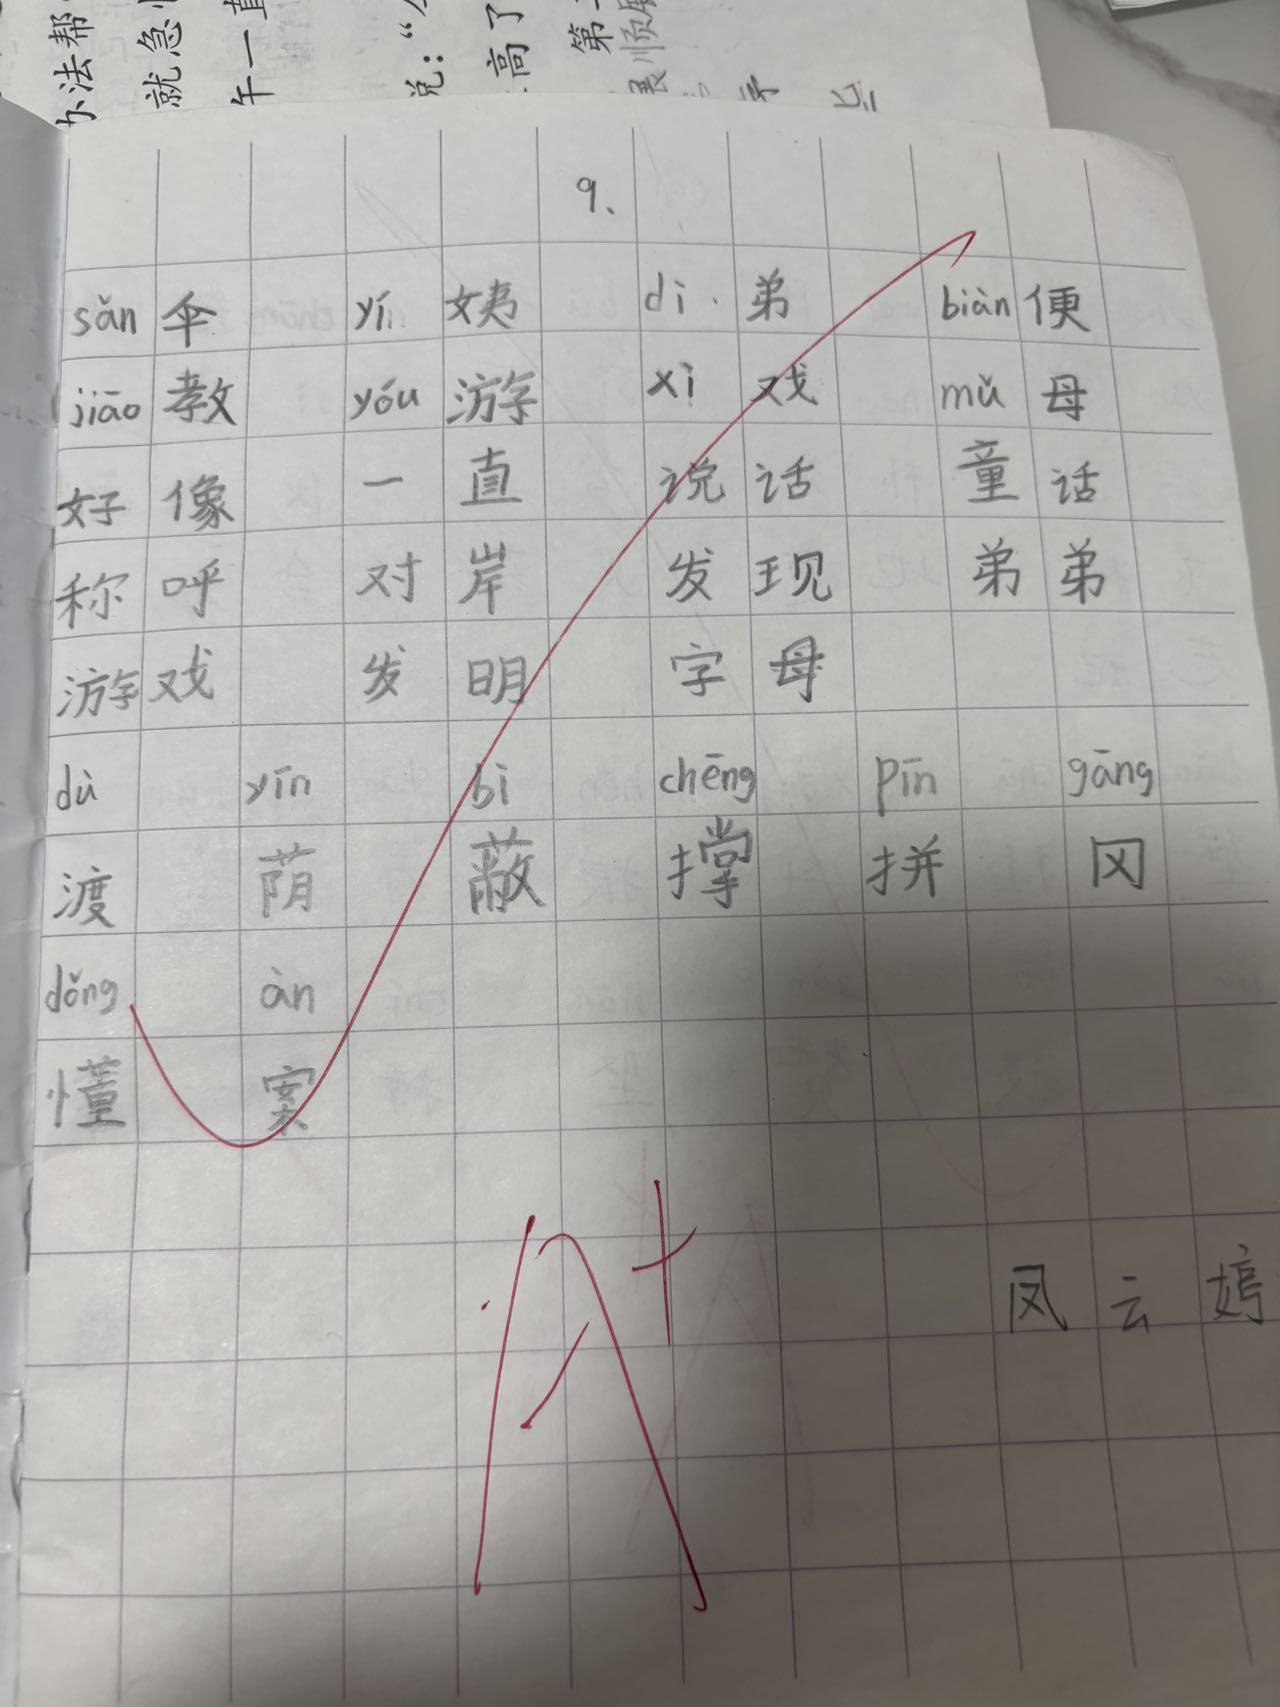 办法帮
就急
午一直
说：“
高了
第一
展顺
9.
sǎn 伞 yí 姨 dì 弟 biàn 便
jiāo 教 yóu 游 xì 戏 mǔ 母
好像 一直 说话 童话
称呼 对岸 发现 弟弟
游戏 发明 字母
dù yīn bì chēng pīn gāng
渡 荫 蔽 撑 拼 冈
dǒng àn
懂 案
A+
凤云婷